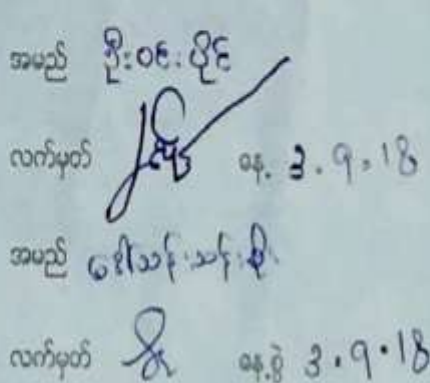 အမည် ဦးဝင်းပိုင်
လက်မှတ် နေ့ 3.9.18
အမည် ဒေါ်သန်းသန်းစိုး
လက်မှတ် နေ့စွဲ 3.9.18